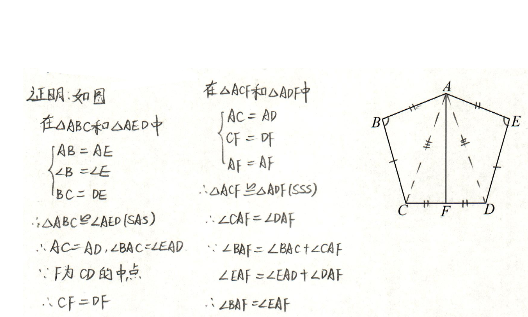 证明:如图
在△ABC和△AED中
AB = AE
∠B = ∠E
BC = DE
∴△ABC≌∠AED(SAS)
∴AC=AD,∠BAC=∠EAD
∵F为CD的中点
∴CF=DF
在△ACF和△ADF中
AC = AD
CF = DF
AF = AF
∴△ACF≌△ADF(SSS)
∴∠CAF=∠DAF
∵∠BAF=∠BAC+∠CAF
∠EAF=∠EAD+∠DAF
∴∠BAF=∠EAF
A
B
E
C
F
D